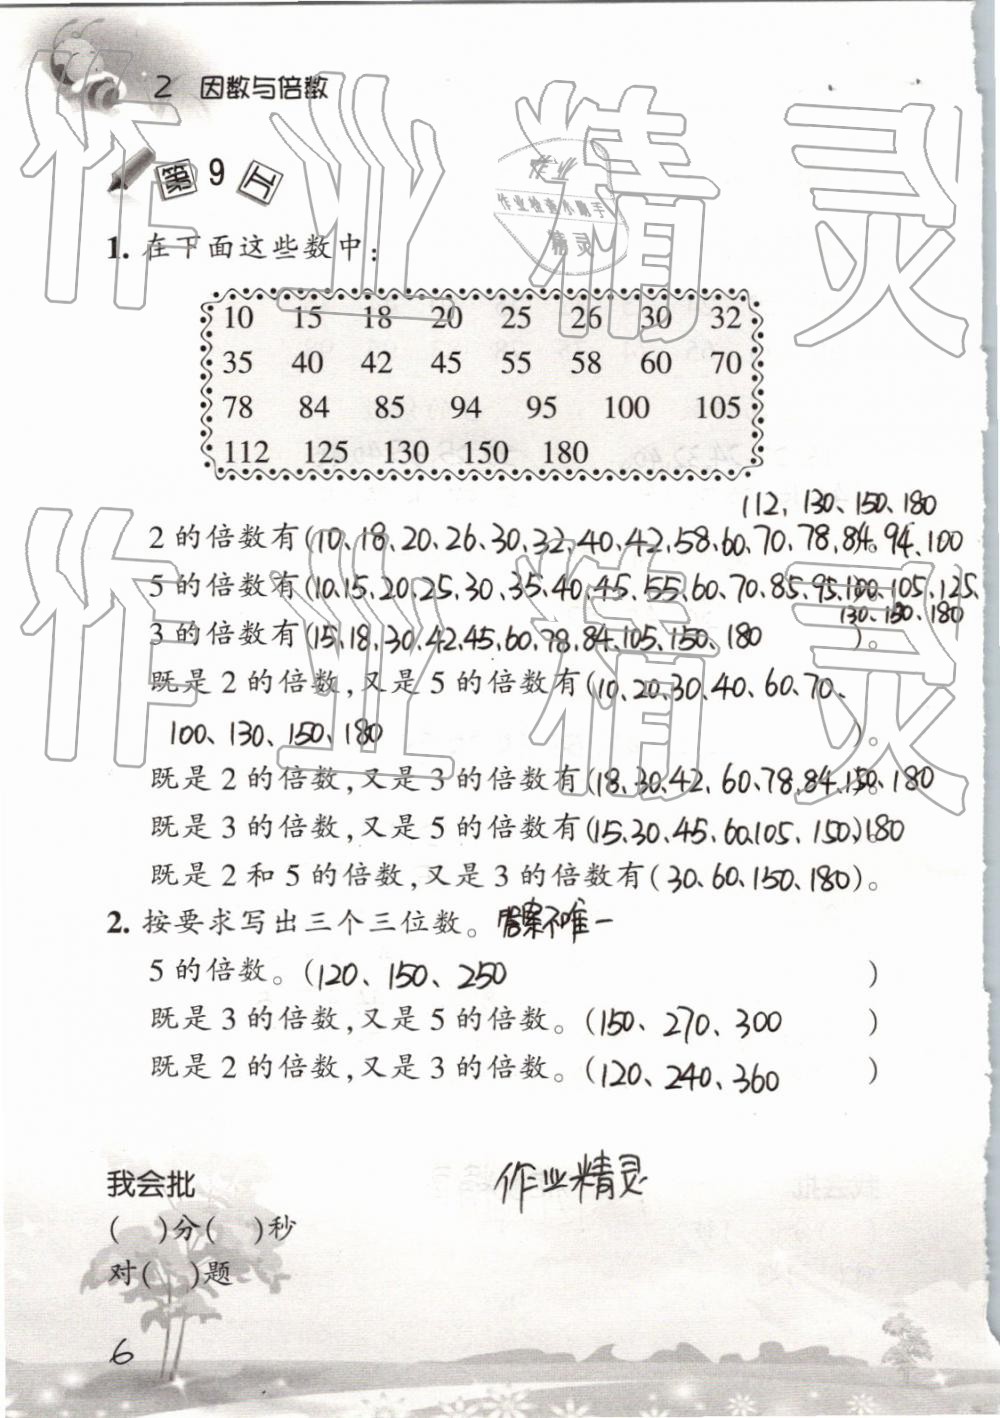 2 因数与倍数
第 9 卫
作业
作业检查小助手
精灵
1. 在下面这些数中:
10 15 18 20 25 26 30 32
35 40 42 45 55 58 60 70
78 84 85 94 95 100 105
112 125 130 150 180
112, 130、150、180
2 的倍数有(10、18、20、26、30、32、40、42、58、60、70、78、84、94、100
5 的倍数有(10、15、20、25、30、35、40、45、55、60、70、85、95、100、105、125、
130、150、180
3 的倍数有(15、18、30、42、45、60、78、84、105、150、180 )。
既是 2 的倍数,又是 5 的倍数有(10、20、30、40、60、70、
100、130、150、180 )。
既是 2 的倍数,又是 3 的倍数有(18、30、42、60、78、84、150、180
既是 3 的倍数,又是 5 的倍数有(15、30、45、60、105、150)180
既是 2 和 5 的倍数,又是 3 的倍数有(30、60、150、180)。
2. 按要求写出三个三位数。答案不唯一
5 的倍数。(120、150、250 )
既是 3 的倍数,又是 5 的倍数。(150、270、300 )
既是 2 的倍数,又是 3 的倍数。(120、240、360 )
作业精灵
我会批
( )分( )秒
对( )题
6
作业精灵
作业精灵